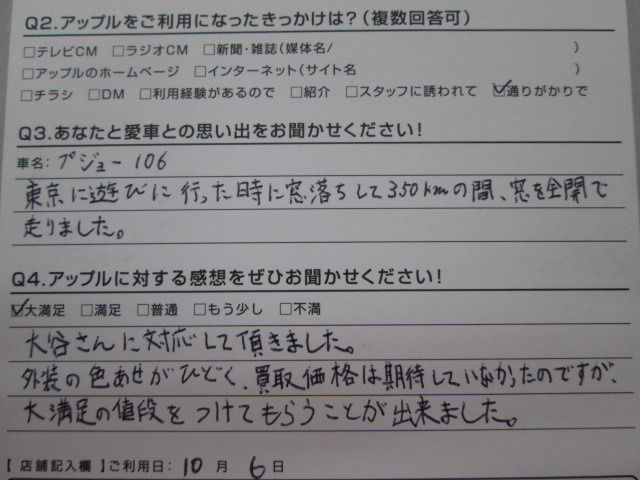 Q2.アップルをご利用になったきっかけは?(複数回答可)
□テレビCM □ラジオCM □新聞・雑誌(媒体名/ )
□アップルのホームページ □インターネット(サイト名 )
□チラシ □DM □利用経験があるので □紹介 □スタッフに誘われて ☑通りがかりで
Q3.あなたと愛車との思い出をお聞かせください!
車名: プジョー106
東京に遊びに行った時に窓落ちして350kmの間、窓を全開で
走りました。
Q4.アップルに対する感想をぜひお聞かせください!
☑大満足 □満足 □普通 □もう少し □不満
大谷さんに対応して頂きました。
外装の色あせがひどく、買取価格は期待していなかったのですが、
大満足の値段をつけてもらうことが出来ました。
【店舗記入欄】ご利用日: 10月 6日